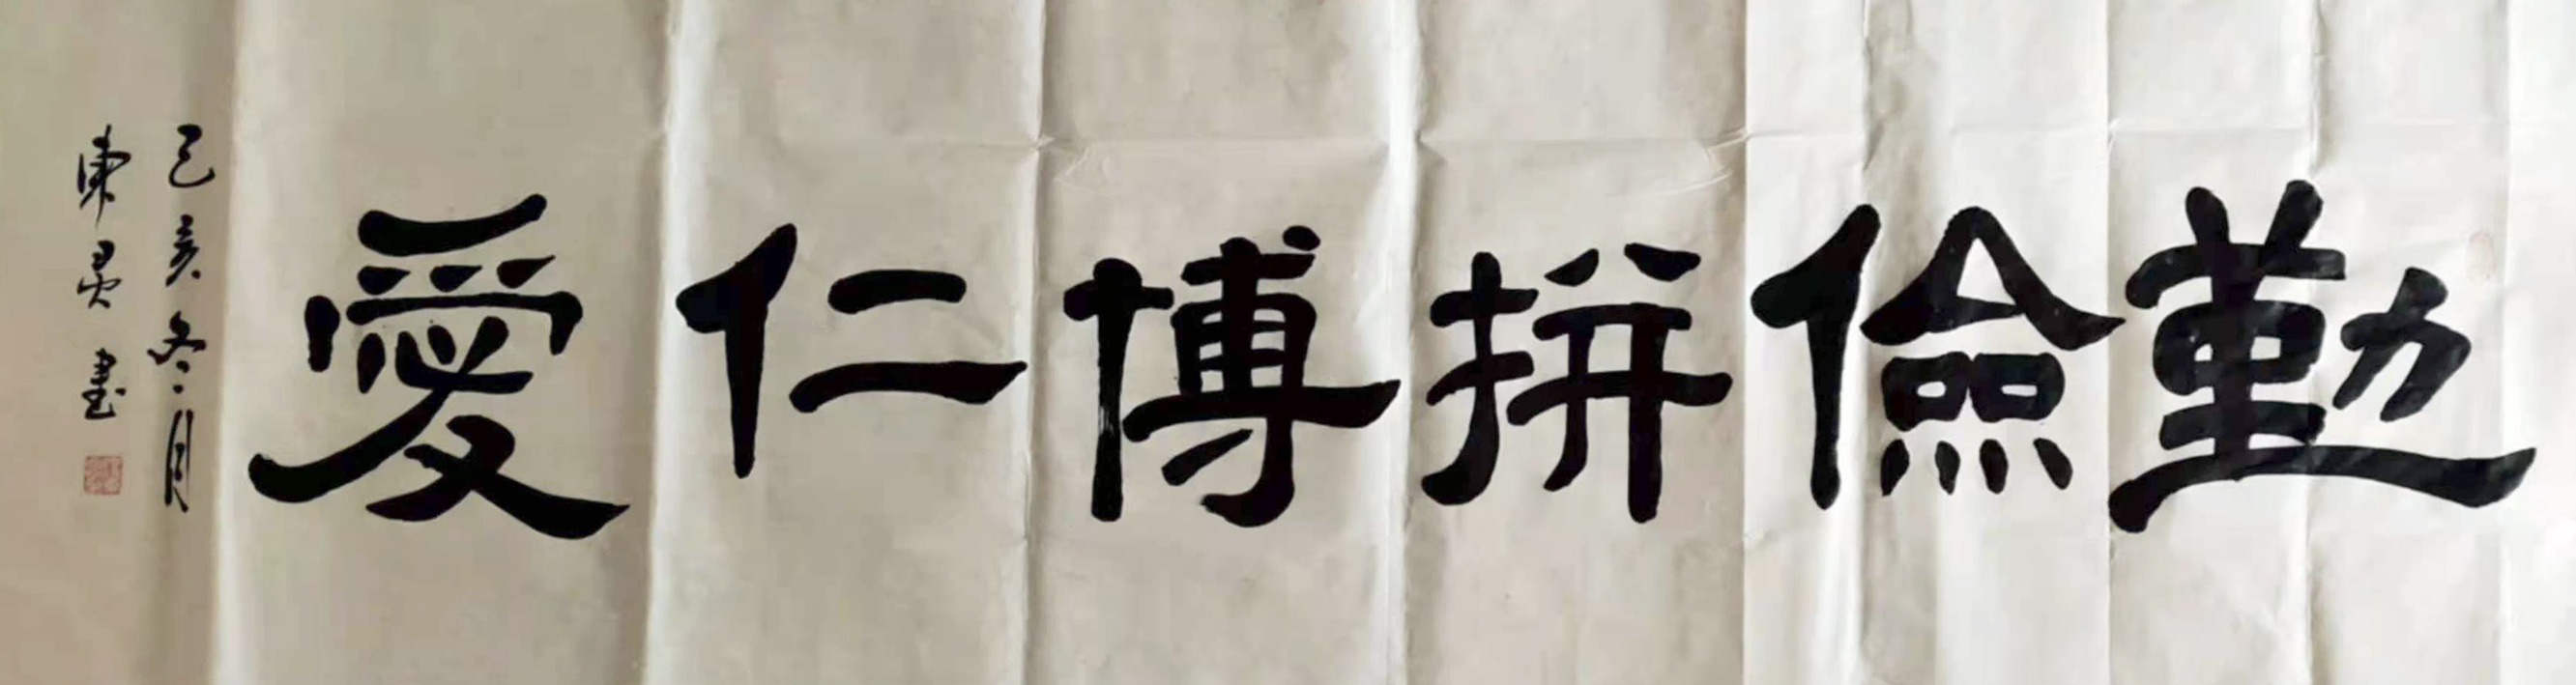 勤儉拼博仁愛
己亥冬月
東昊書